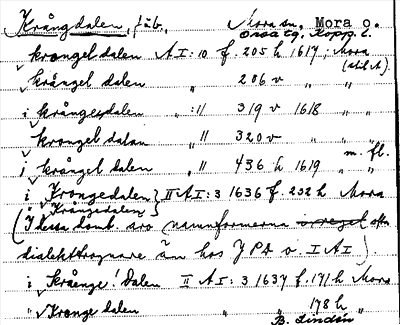 Krångdalen, fäb., Mora sn, Mora o.
Orsa tg, Kopp. l.
krongel dalen A I:10 f. 205 h 1617; Mora
(Avl A).
krångel dalen 206 v
i krångedalen " :11 319 v 1618 " "
krongel dalan " 11 320 v " "
m. fl.
i krångel dalen " 11 436 h 1619 " "
i Krongedalen } II A I:3 1636 f. 252 h Mora
" Krångedalen }
(I dessa dok. äro namnformerna ofta
dialekttrognare än hos JPA o. I A I)
i Krånge! Dalen II A I:3 1637 f. 171 h Mora
" Kronge dalen " " 178 h "
B. Lindén